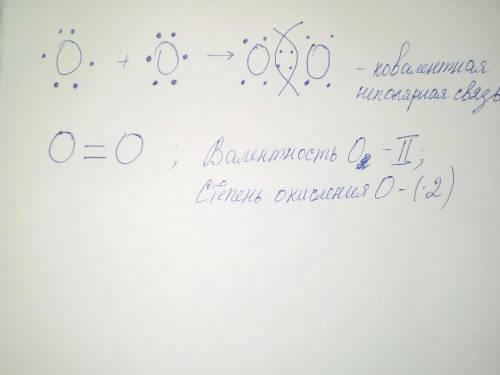 O + O → O :: O - ковалентная
неполярная связь
O = O ; Валентность O - II;
Степень окисления O - (-2)